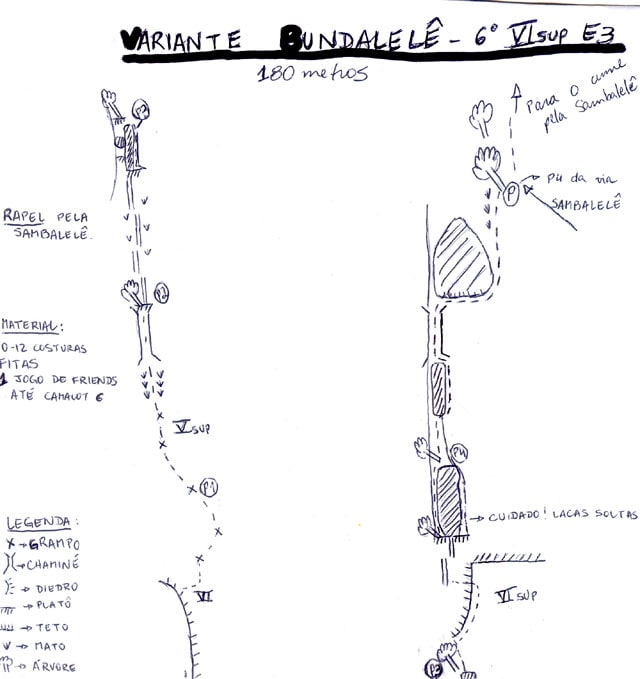 VARIANTE BUNDALELÊ - 6º VI SUP E3
180 metros
P3
RAPEL PELA
SAMBALELÊ.
P2
MATERIAL:
0-12 COSTURAS
FITAS
1 JOGO DE FRIENDS
ATÉ CAMALOT 6
V SUP
P1
VI
LEGENDA:
X → GRAMPO
→ CHAMINÉ
→ DIEDRO
→ PLATÔ
→ TETO
→ MATO
→ ÁRVORE
Para o cume
pela Sambalelê
P → P4 da via
SAMBALELÊ
P4
→ CUIDADO! LACAS SOLTAS
VI SUP
P3